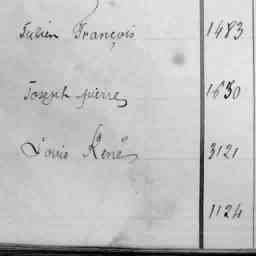 Julien François 1483
Joseph pierre 1650
Louis René 3121
1124